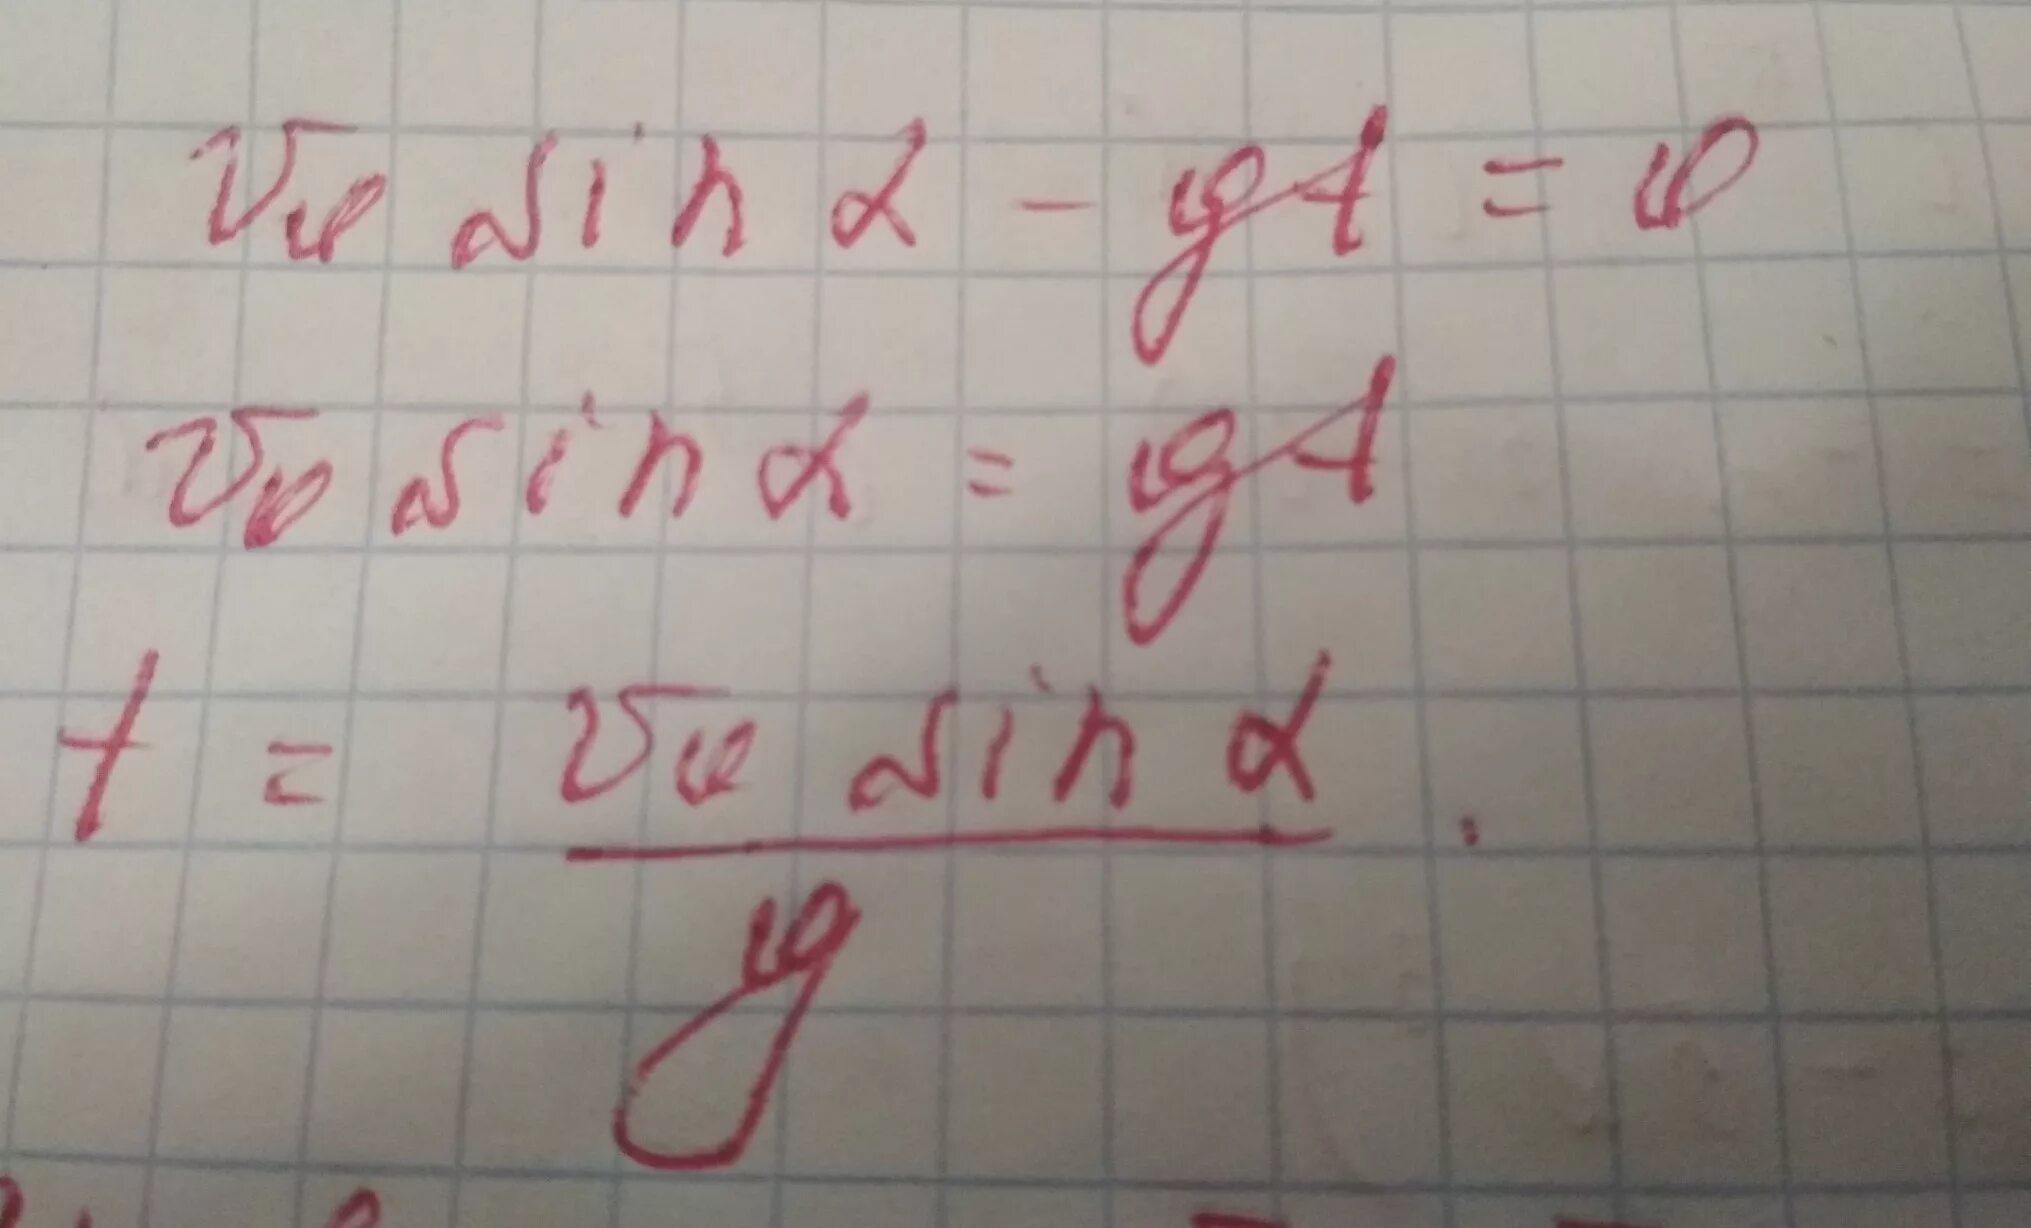 v₀ sin α - gt = 0
v₀ sin α = gt
t = v₀ sin α / g .